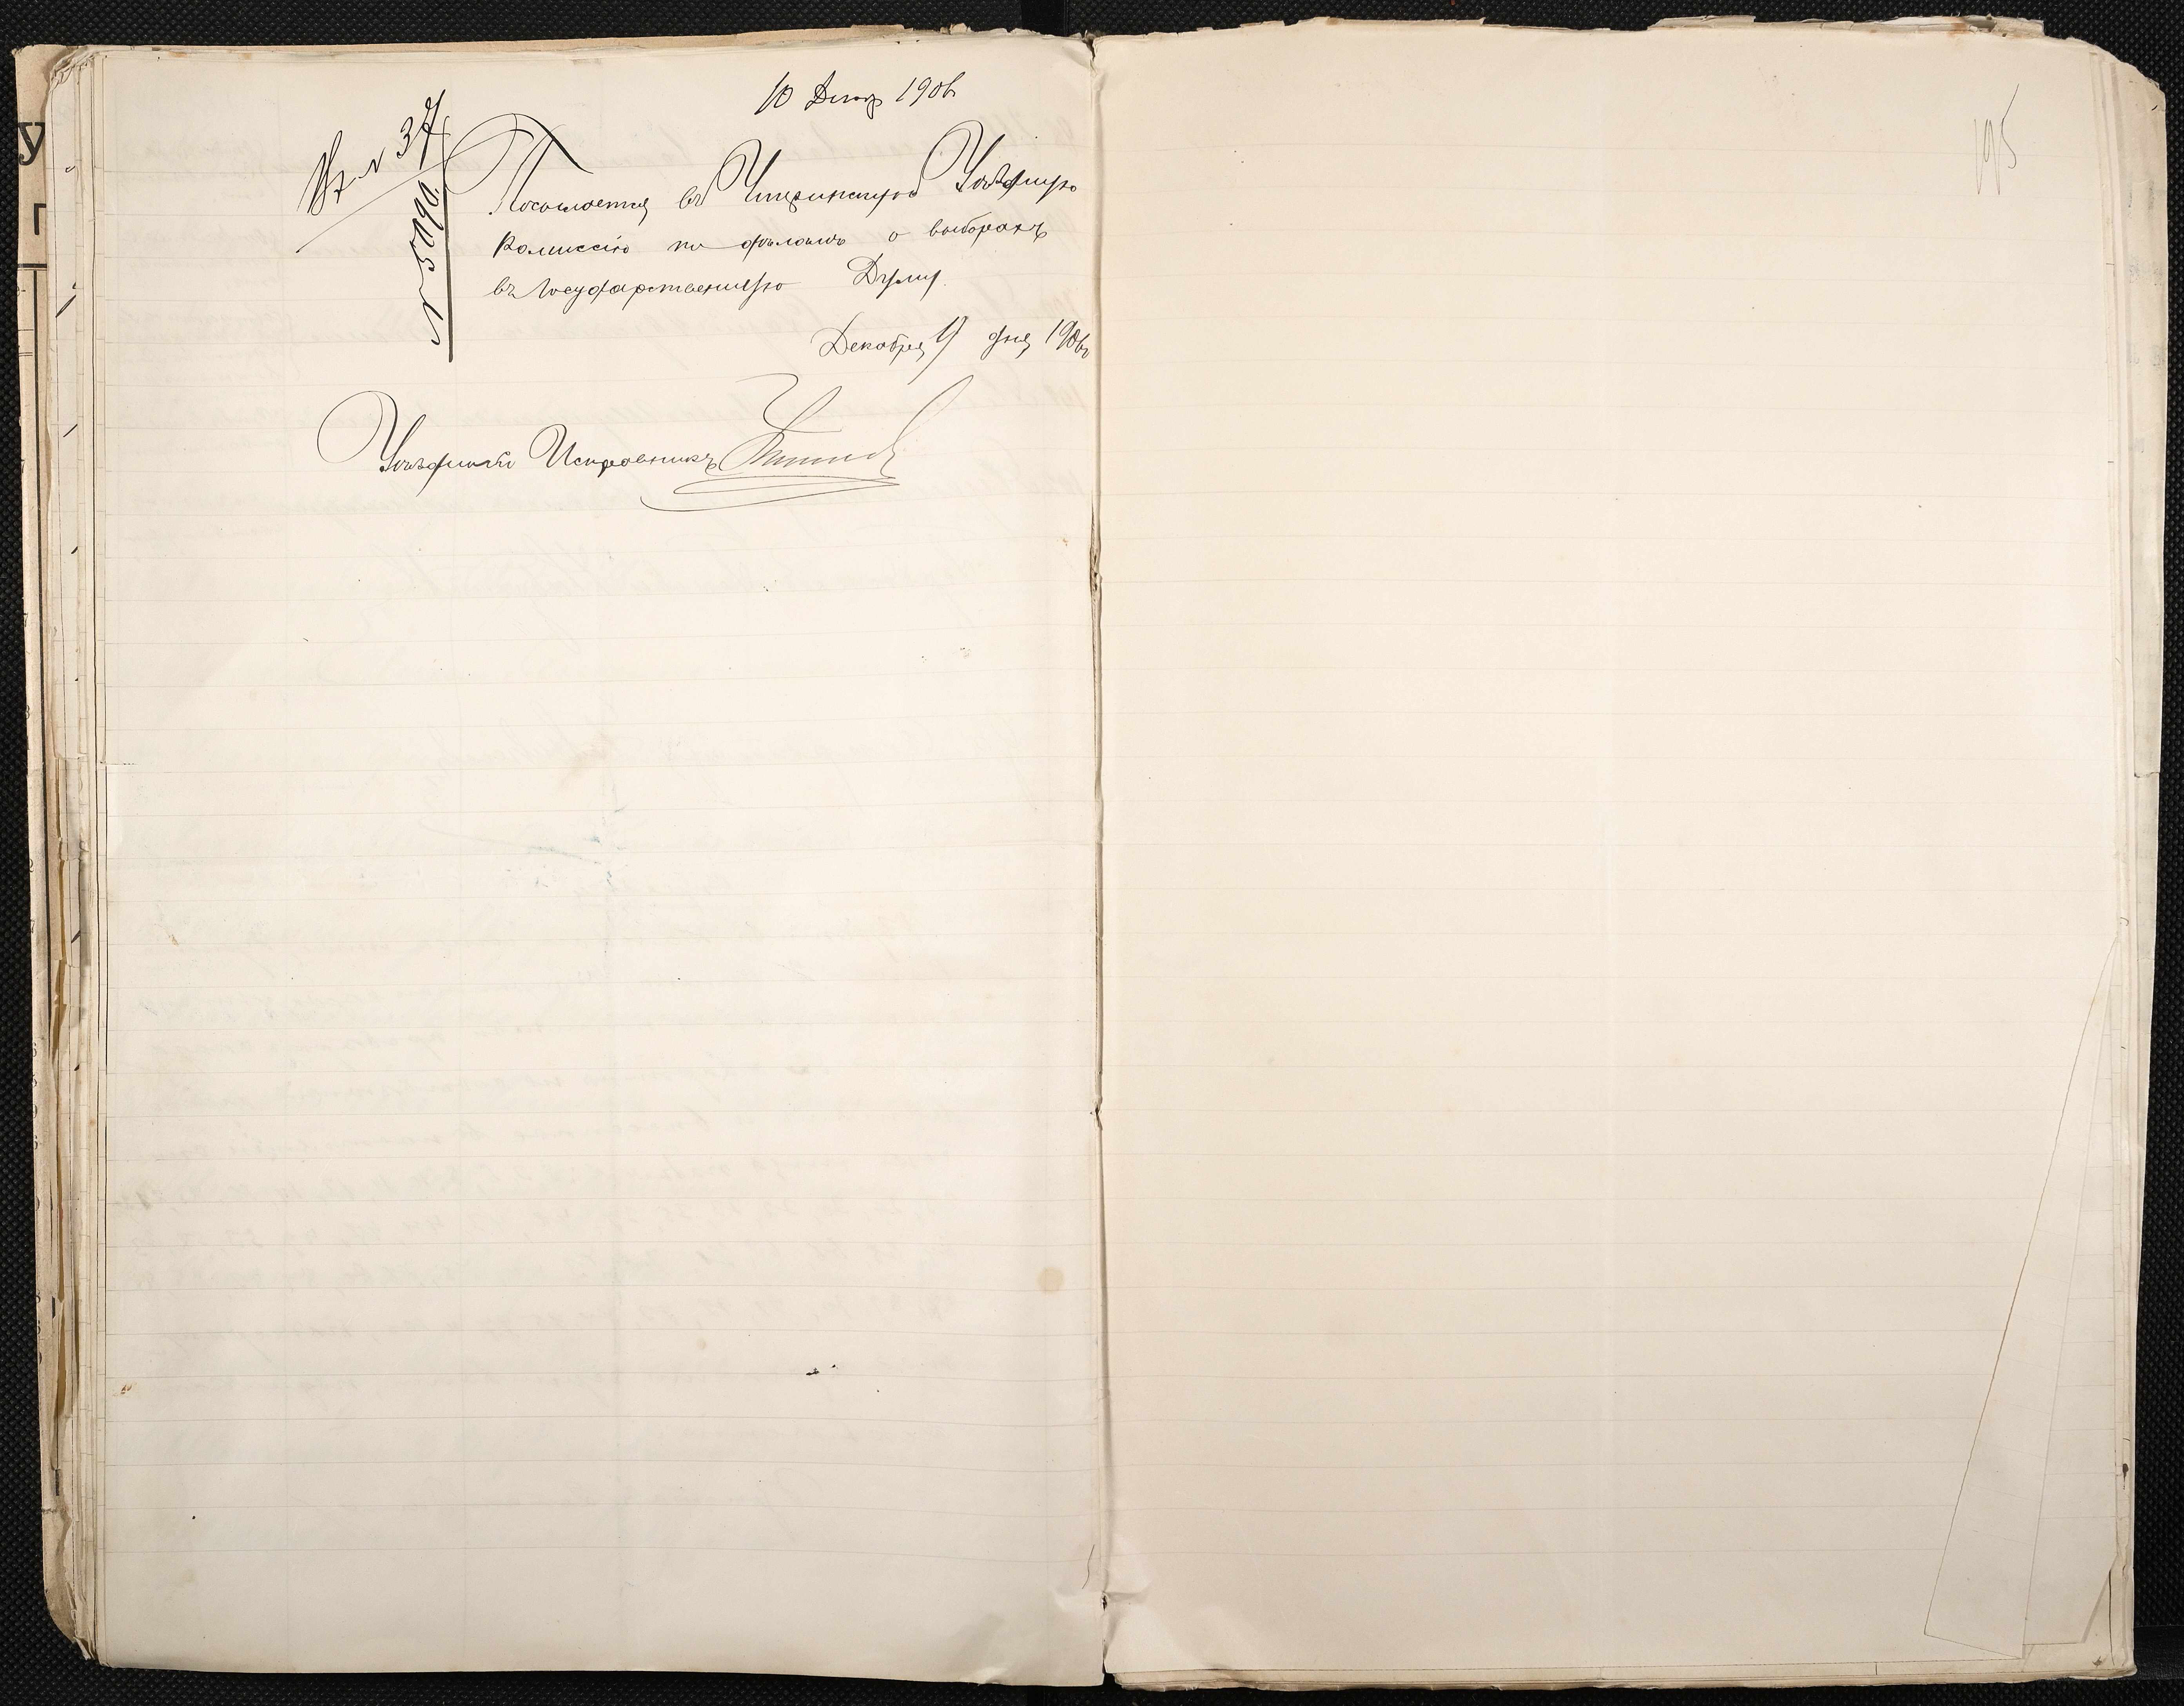 10 Декр 1906
Вх № 37
№ 5090.
Посылается въ Уѣздную
Комиссію по дѣламъ о выборахъ
въ Государственную Думу.
Декабря 9 дня 1906
Уѣздный Исправникъ
195